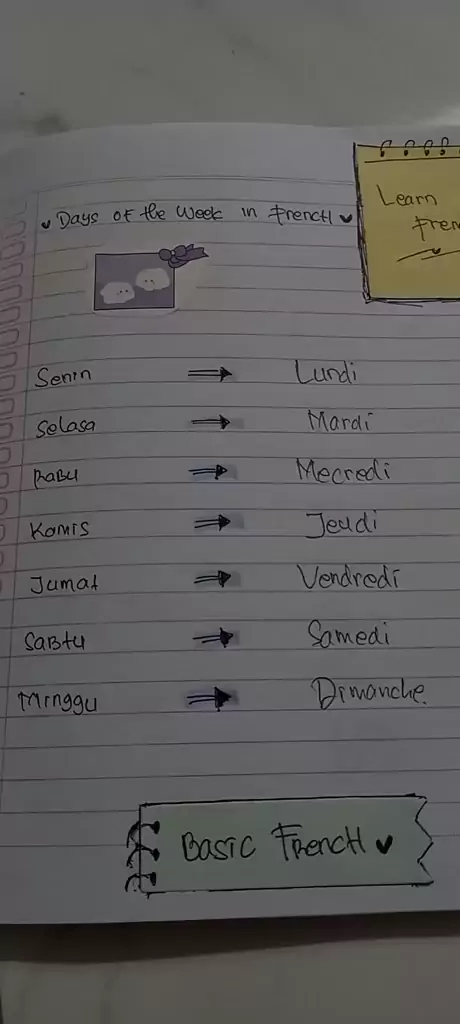 Days of the Week in French
Learn
Senin ⇒ Lundi
Selasa ⇒ Mardi
Rabu ⇒ Mecredi
Kamis ⇒ Jeudi
Jumat ⇒ Vendredi
Sabtu ⇒ Samedi
Minggu ⇒ Dimanche.
Basic French